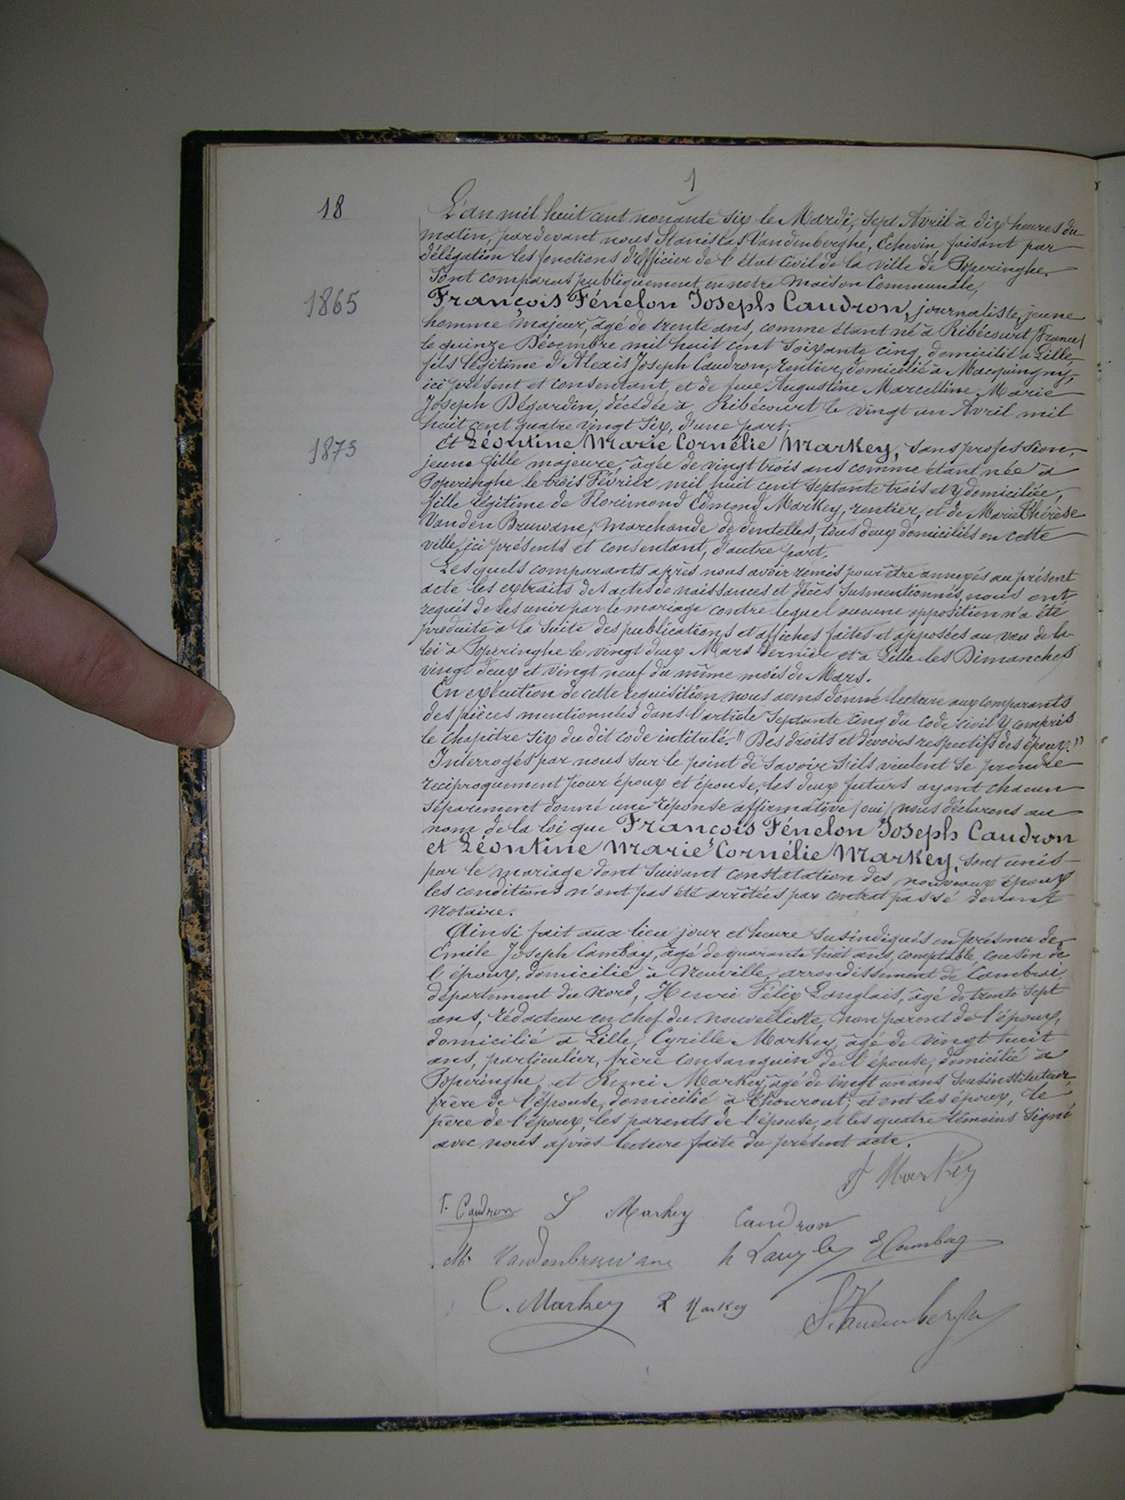 1
18
L'an mil huit cent nonante six le Mardi, sept Avril à dix heures du
matin, pardevant nous Stanislas Vandenberghe, Echevin faisant par
délégation les fonctions d'Officier de l'état Civil de la ville de Poperinghe,
Sont comparus publiquement en notre maison Communale,
1865
François Fénelon Joseph Caudron, journaliste, jeune
homme majeur, âgé de trente ans, comme étant né à Ribécourt (France)
le quinze Décembre mil huit cent soixante cinq, domicilié à Lille,
fils légitime d'Alexis Joseph Caudron, rentier, domicilié à
ici présent et consentant, et de feue Augustine Marcelline Marie
Joseph Dégardin, décédée à Ribécourt le vingt un Avril mil
huit cent quatre vingt six, d'une part;
1873
Et Léontine Marie Cornélie Markey, sans profession,
jeune fille majeure, âgée de vingt trois ans comme étant née à
Poperinghe le trois Février mil huit cent septante trois et y domiciliée,
fille légitime de Florimond Edmond Markey, rentier, et de Marie Thérèse
Vanden Bruwane, marchande de dentelles, tous deux domiciliés en cette
ville, ici présents et consentant, d'autre part.
Lesquels comparants après nous avoir remis pour être annexés au présent
acte les extraits des actes de naissances et décès susmentionnés, nous ont
requis de les unir par le mariage contre lequel aucune opposition n'a été
produite à la suite des publications et affiches faites et apposées au vœu de la
loi à Poperinghe le vingt deux Mars dernier et à Lille les Dimanches
vingt deux et vingt neuf du même mois de Mars.
En exécution de cette réquisition nous avons donné lecture aux comparants
des pièces mentionnées dans l'article septante cinq du code civil y compris
le chapitre six du dit code intitulé: "Des droits et devoirs respectifs des époux."
Interrogés par nous sur le point de savoir s'ils veulent se prendre
réciproquement pour époux et épouse, les deux futurs ayant chacun
séparément donné une réponse affirmative (oui) nous déclarons au
nom de la loi que François Fénelon Joseph Caudron
et Léontine Marie Cornélie Markey, sont unis
par le mariage dont suivant constatation des nouveaux époux
les conditions n'ont pas été arrêtées par contrat passé devant
Notaire.
Ainsi fait aux lieu jour et heure susindiqués en présence de
Emile Joseph Cambay, âgé de quarante huit ans, comptable, cousin de
l'époux, domicilié à Neuville, arrondissement de Cambrai,
département du Nord, Henri Félix Langlais, âgé de trente sept
ans, rédacteur en chef du nouvelliste, non parent de l'époux,
domicilié à Lille, Cyrille Markey, âgé de vingt huit
ans, particulier, frère consanguin de l'épouse, domicilié à
Poperinghe, et Remi Markey, âgé de vingt un ans sousinstituteur,
frère de l'épouse, domicilié à Thourout; et ont les époux, le
père de l'époux, les parents de l'épouse, et les quatre témoins signé
avec nous après lecture faite du présent acte.
F Markey
F. Caudron L Markey Caudron
M. Vandenbruwane E Cambay
C. Markey R Markey S. Vandenberghe